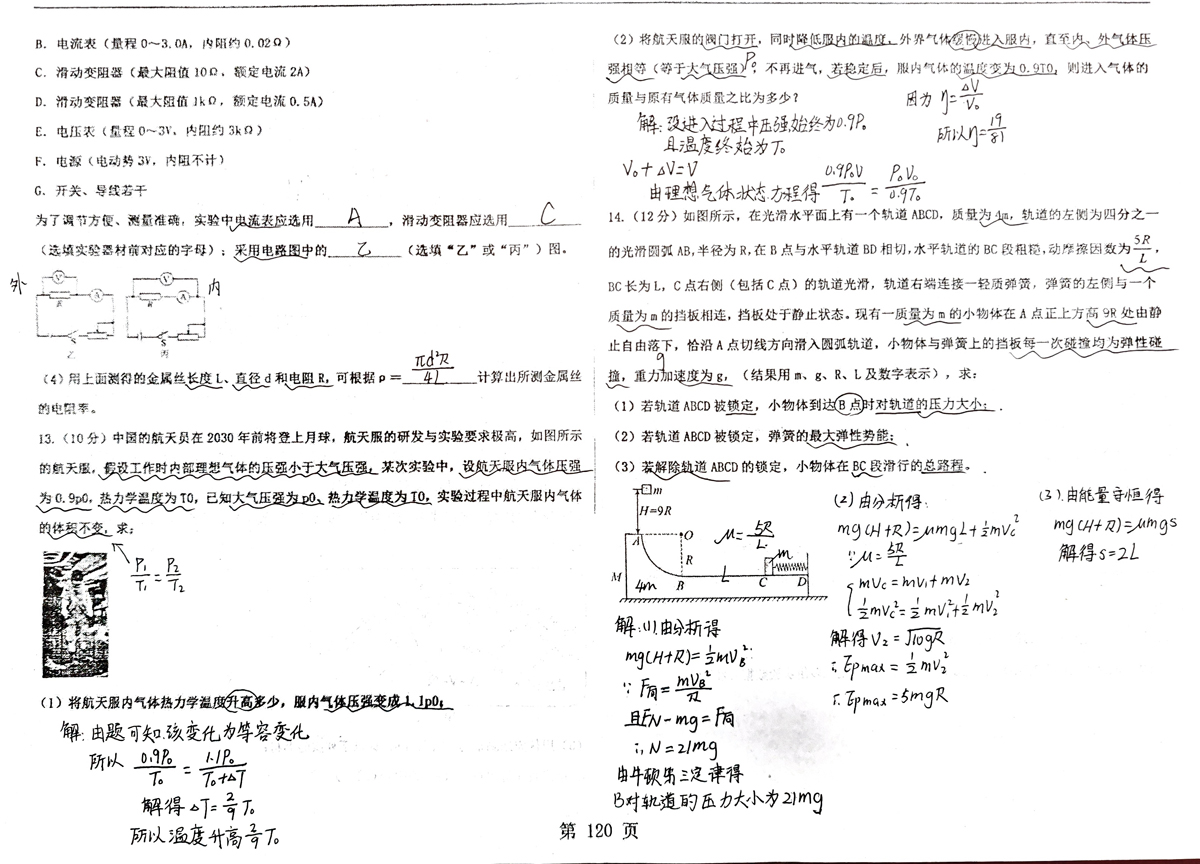 B. 电流表（量程 0～3.0A，内阻约 0.02Ω）
C. 滑动变阻器（最大阻值 10Ω，额定电流 2A）
D. 滑动变阻器（最大阻值 1kΩ，额定电流 0.5A）
E. 电压表（量程 0～3V，内阻约 3kΩ）
F. 电源（电动势 3V，内阻不计）
G. 开关、导线若干
为了调节方便、测量准确，实验中电流表应选用 A ，滑动变阻器应选用 C
（选填实验器材前对应的字母）；采用电路图中的 乙 （选填“乙”或“丙”）图。
外 内
V A R S 乙
V A R S 丙
（4）用上面测得的金属丝长度 L、直径 d 和电阻 R，可根据 ρ＝ πd²R/4L 计算出所测金属丝
的电阻率。
13.（10 分）中国的航天员在 2030 年前将登上月球，航天服的研发与实验要求极高，如图所示
的航天服，假设工作时内部理想气体的压强小于大气压强，某次实验中，设航天服内气体压强
为 0.9p0，热力学温度为 T0，已知大气压强为 p0、热力学温度为 T0，实验过程中航天服内气体
的体积不变，求：
P₁/T₁=P₂/T₂
（1）将航天服内气体热力学温度升高多少，服内气体压强变成 1.1p0；
解：由题可知，该变化为等容变化
所以 0.9P₀/T₀ = 1.1P₀/T₀+△T
解得△T=2/9 T₀
所以温度升高2/9 T₀
（2）将航天服的阀门打开，同时降低服内的温度，外界气体缓慢进入服内，直至内、外气体压
强相等（等于大气压强）P₀，不再进气，若稳定后，服内气体的温度变为 0.9T0，则进入气体的
质量与原有气体质量之比为多少？
因为 η=△V/V₀
所以η=19/81
解：设进入过程中压强始终为0.9P₀
且温度终始为T₀
V₀+△V=V
由理想气体状态方程得 0.9P₀V/T₀ = P₀V₀/0.9T₀
14.（12 分）如图所示，在光滑水平面上有一个轨道 ABCD，质量为 4m，轨道的左侧为四分之一
的光滑圆弧 AB，半径为 R，在 B 点与水平轨道 BD 相切，水平轨道的 BC 段粗糙，动摩擦因数为 5R/L，
BC 长为 L，C 点右侧（包括 C 点）的轨道光滑，轨道右端连接一轻质弹簧，弹簧的左侧与一个
质量为 m 的挡板相连，挡板处于静止状态。现有一质量为 m 的小物体在 A 点正上方高 9R 处由静
止自由落下，恰沿 A 点切线方向滑入圆弧轨道，小物体与弹簧上的挡板每一次碰撞均为弹性碰
g
撞，重力加速度为 g，（结果用 m、g、R、L 及数字表示），求：
（1）若轨道 ABCD 被锁定，小物体到达 B 点时对轨道的压力大小；
（2）若轨道 ABCD 被锁定，弹簧的最大弹性势能；
（3）若解除轨道 ABCD 的锁定，小物体在 BC 段滑行的总路程。
m
H=9R
A O
R
M 4m B L C D
μ=5R/L
m
解：(1).由分析得
mg(H+R)=½mV_B²
∵ F向=mV_B²/R
且FN-mg=F向
∴N=21mg
由牛顿第三定律得
B对轨道的压力大小为21mg
(2)由分析得：
mg(H+R)=μmgL+½mVc²
∵μ=5R/L
{mVc=mV₁+mV₂
½mVc²=½mV₁²+½mV₂²
解得V₂=√10gR
∴Epmax=½mV₂²
∴Epmax=5mgR
(3).由能量守恒得
mg(H+R)=μmgs
解得s=2L
第 120 页